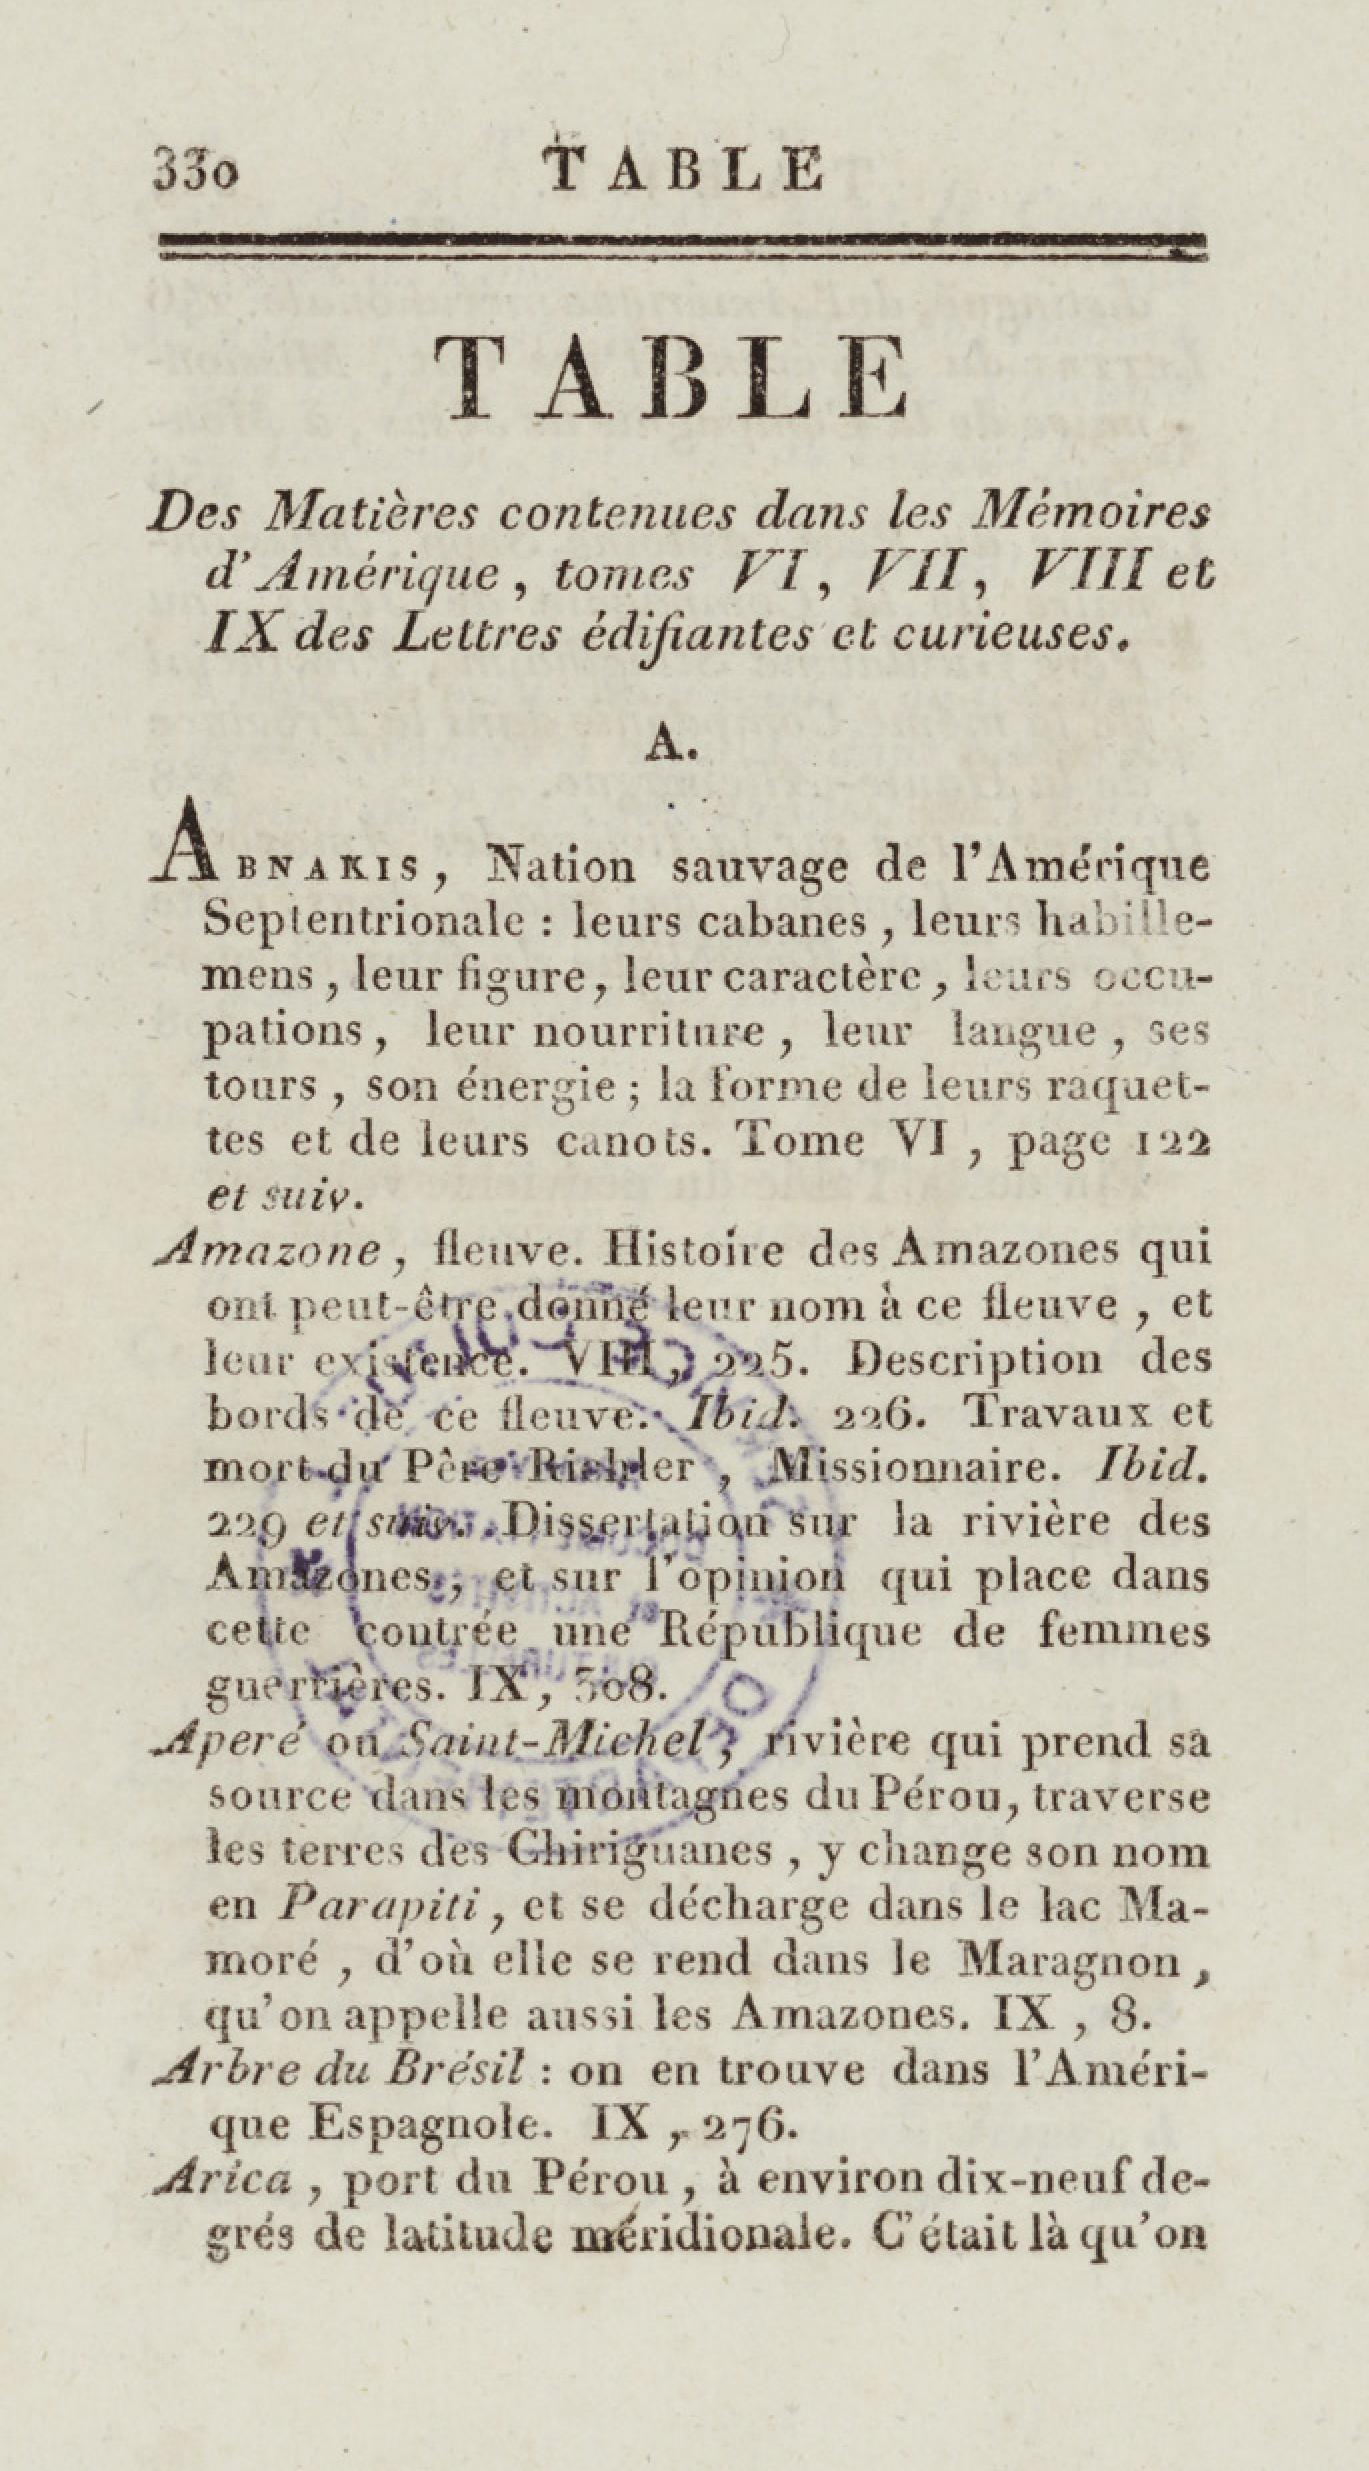 330 TABLE
TABLE
Des Matières contenues dans les Mémoires
d'Amérique, tomes VI, VII, VIII et
IX des Lettres édifiantes et curieuses.
A.
ABNAKIS, Nation sauvage de l'Amérique
Septentrionale : leurs cabanes, leurs habille-
mens, leur figure, leur caractère, leurs occu-
pations, leur nourriture, leur langue, ses
tours, son énergie ; la forme de leurs raquet-
tes et de leurs canots. Tome VI, page 122
et suiv.
Amazone, fleuve. Histoire des Amazones qui
ont peut-être donné leur nom à ce fleuve, et
leur existence. VIII, 225. Description des
bords de ce fleuve. Ibid. 226. Travaux et
mort du Père Richler, Missionnaire. Ibid.
229 et suiv. Dissertation sur la rivière des
Amazones, et sur l'opinion qui place dans
cette contrée une République de femmes
guerrières. IX, 308.
Aperé ou Saint-Michel, rivière qui prend sa
source dans les montagnes du Pérou, traverse
les terres des Chiriguanes, y change son nom
en Parapiti, et se décharge dans le lac Ma-
moré, d'où elle se rend dans le Maragnon,
qu'on appelle aussi les Amazones. IX, 8.
Arbre du Brésil : on en trouve dans l'Améri-
que Espagnole. IX, 276.
Arica, port du Pérou, à environ dix-neuf de-
grés de latitude méridionale. C'était là qu'on